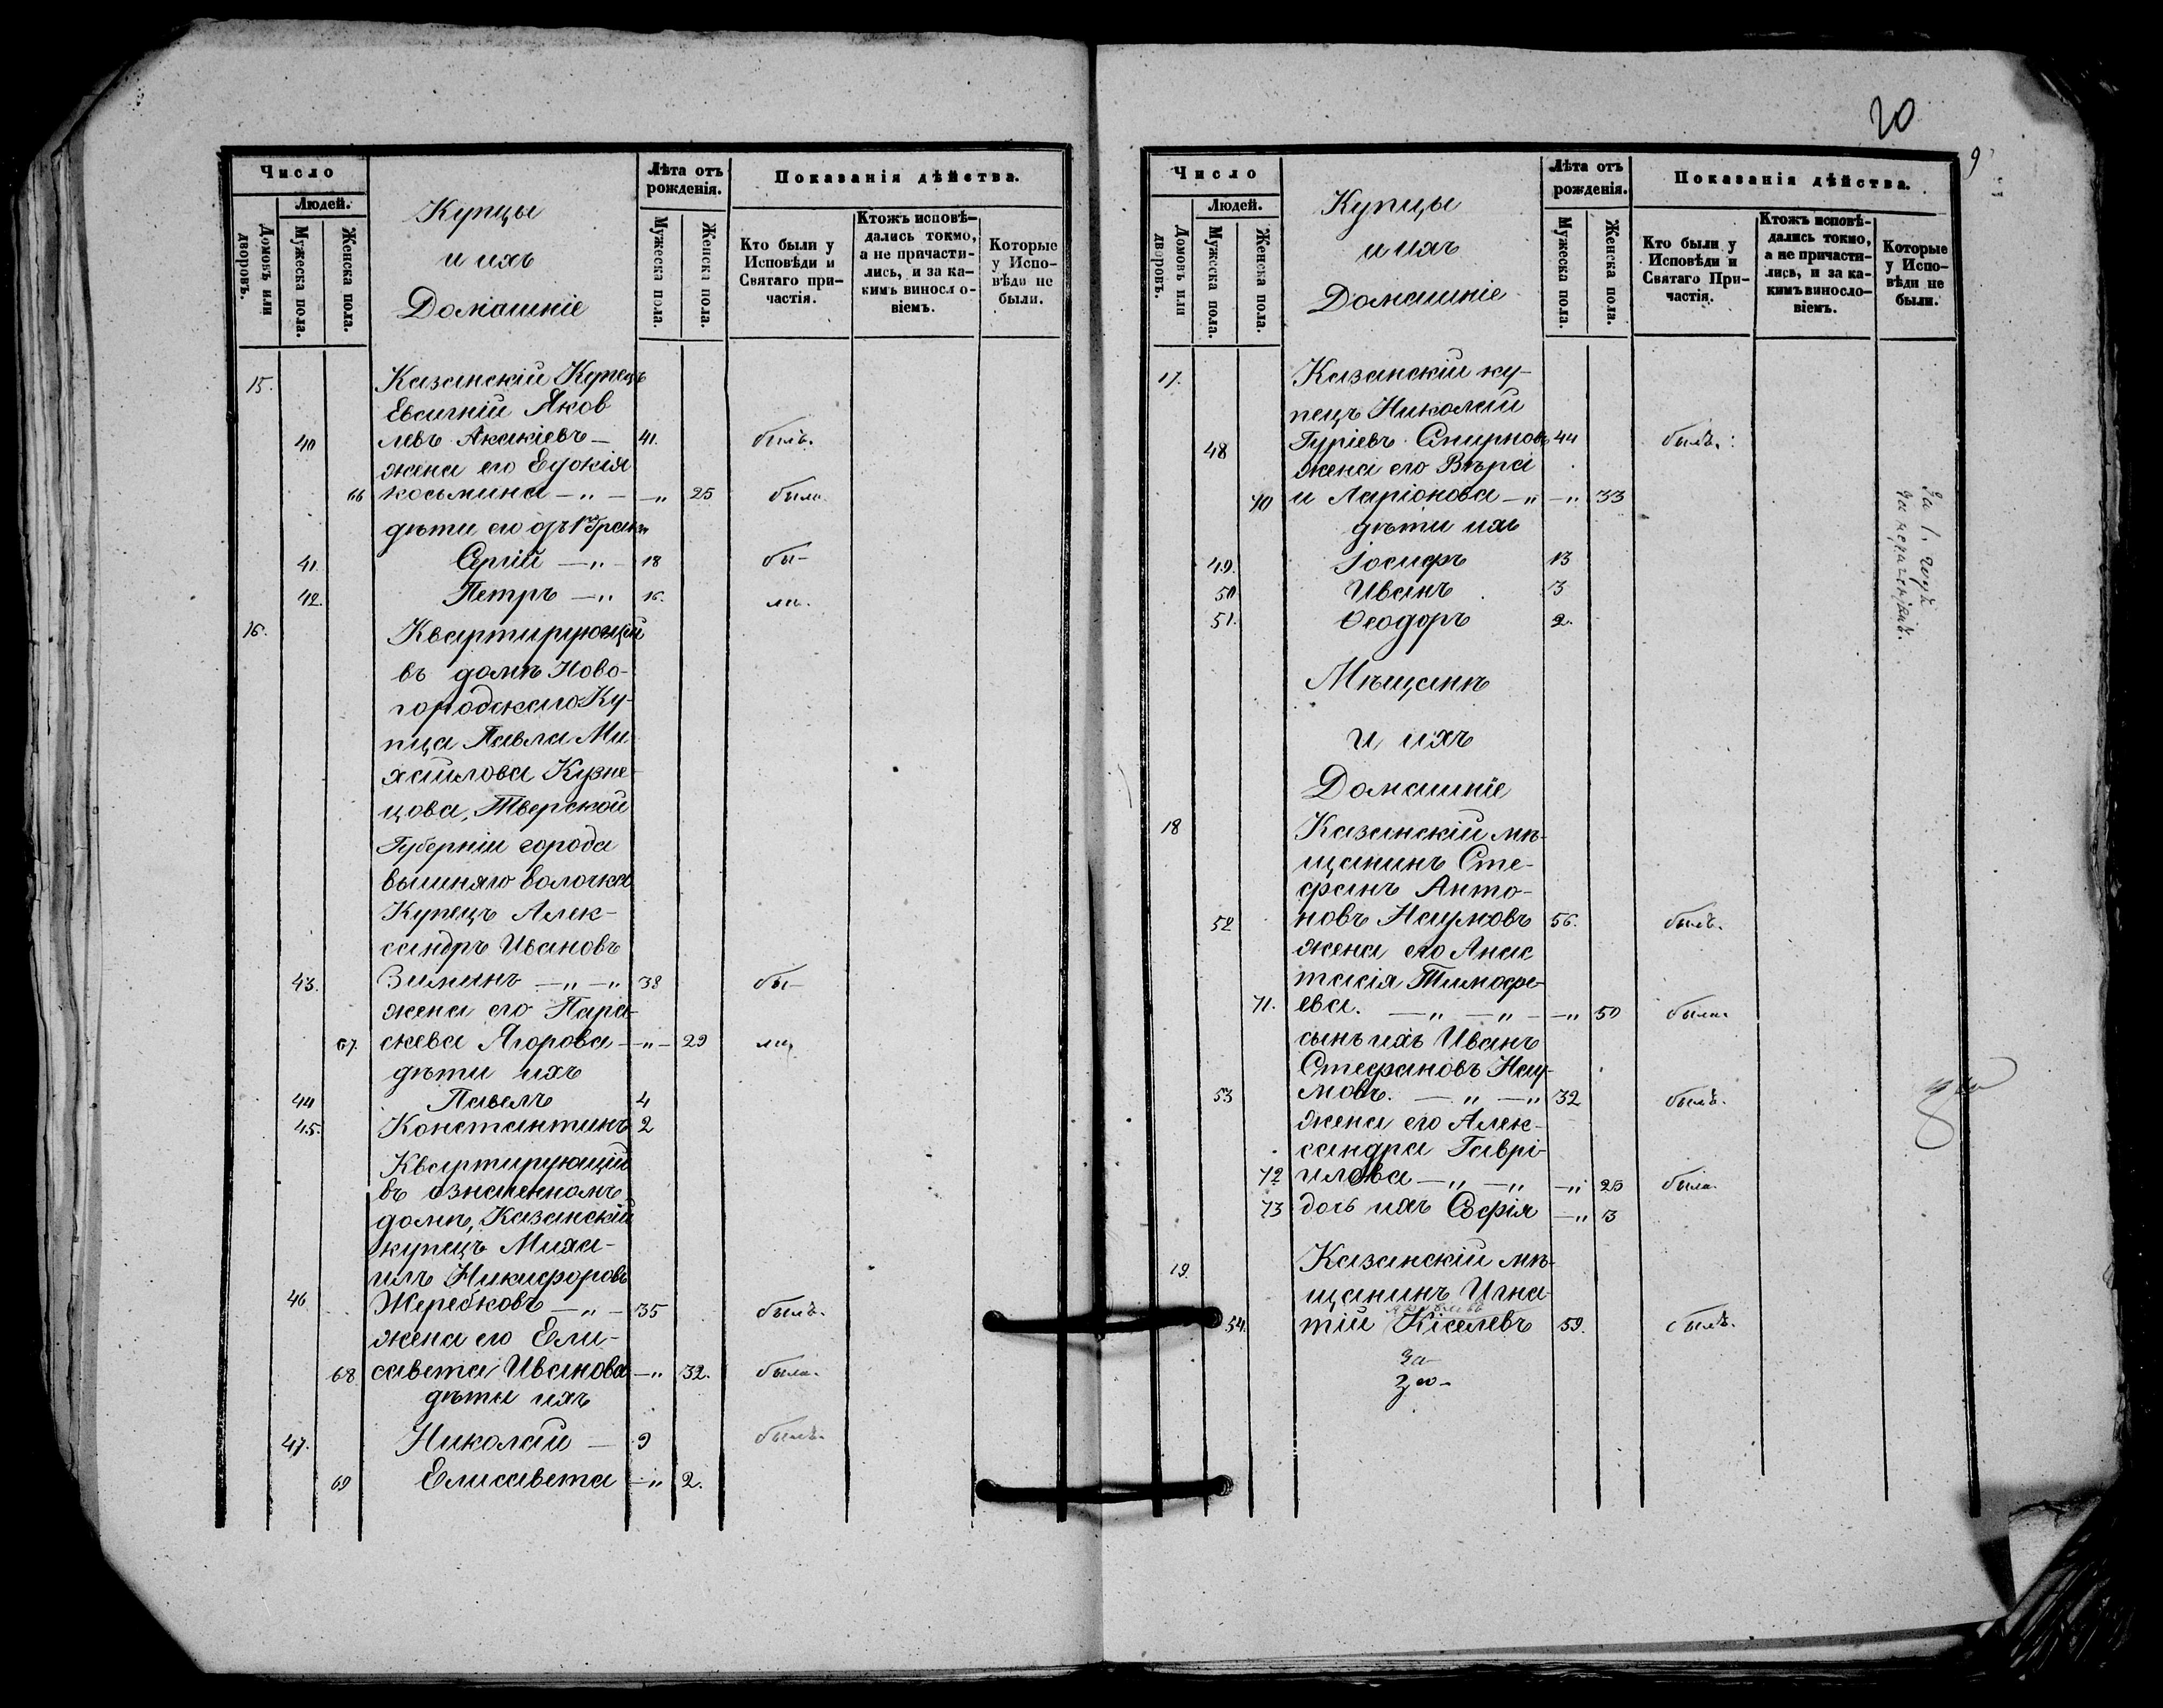 Число
Людей.
Домовъ или дворовъ.
Мужеска пола.
Женска пола.
Купцы
и ихъ
Домашніе
Лѣта отъ рожденія.
Мужеска пола.
Женска пола.
Показанія дѣйства.
Кто были у Исповѣди и Святаго причастія.
Ктожъ исповѣдались токмо, а не причастились, и за какимъ винословіемъ.
Которые у Исповѣди не были.
15. Казанскій Купецъ
Евсигній Яков
40 левъ Акакіевъ — 41. былъ.
жена его Едокія
66 косьмина — „ — — „ 25 была
дѣти его отъ 1го брака
41. Сергій — „ — 18 бы-
42. Петръ — „ 16. ли.
16. Квартирующій
въ домѣ Ново-
городскаго Ку-
пца Павла Ми
хайлова Кузне-
цова, Тверской
Губерніи города
вышняго волочка
Купецъ Алек-
сандръ Ивановъ
43. Зиминъ — „ — „ 38 бы-
жена его Пара-
67. скева Ягорова — „ — 29 ли
дѣти ихъ
44 Павелъ 4
45. Константинъ 2
Квартирующій
въ означенномъ
домѣ, Казанскій
купецъ Миха-
илъ Никифоровъ
46 Жеребковъ — „ — 35 былъ.
жена его Ели-
68. савета Иванова — „ 32. была.
дѣти ихъ
47. Николай — 9 былъ.
69 Елисавета — „ 2.
20
9
Число
Людей.
Домовъ или дворовъ.
Мужеска пола.
Женска пола.
Купцы
и ихъ
Домашніе
Лѣта отъ рожденія.
Мужеска пола.
Женска пола.
Показанія дѣйства.
Кто были у Исповѣди и Святаго Причастія.
Ктожъ исповѣдались токмо, а не причастились, и за какимъ винословіемъ.
Которые у Исповѣди не были.
17. Казанскій ку-
пецъ Николай
48 Гуріевъ Смирновъ 44 былъ.
жена его Вѣра
70 и Ларіонова — „ — „ 33
дѣти ихъ
49. Іосифъ 13
50 Иванъ 3
51. Ѳеодоръ 2.
Мѣщанѣ
и ихъ
Домашніе
18 Казанскій мѣ-
щанинъ Сте-
фанъ Анто-
52 новъ Наумовъ 56. былъ.
жена его Анас
тасія Тимофе-
71. ева. — „ — „ — — „ 50 была.
сынъ ихъ Иванъ
Стефановъ Нау-
53 мовъ. — „ — „ 32 былъ.
жена его Алек-
сандра Гаврі-
72 илова — „ — „ — „ 25 была.
73 дочь ихъ Софія — „ 3
19. Казанскій мѣ-
щанинъ Игна
54. тій Кіселевъ 59. былъ.